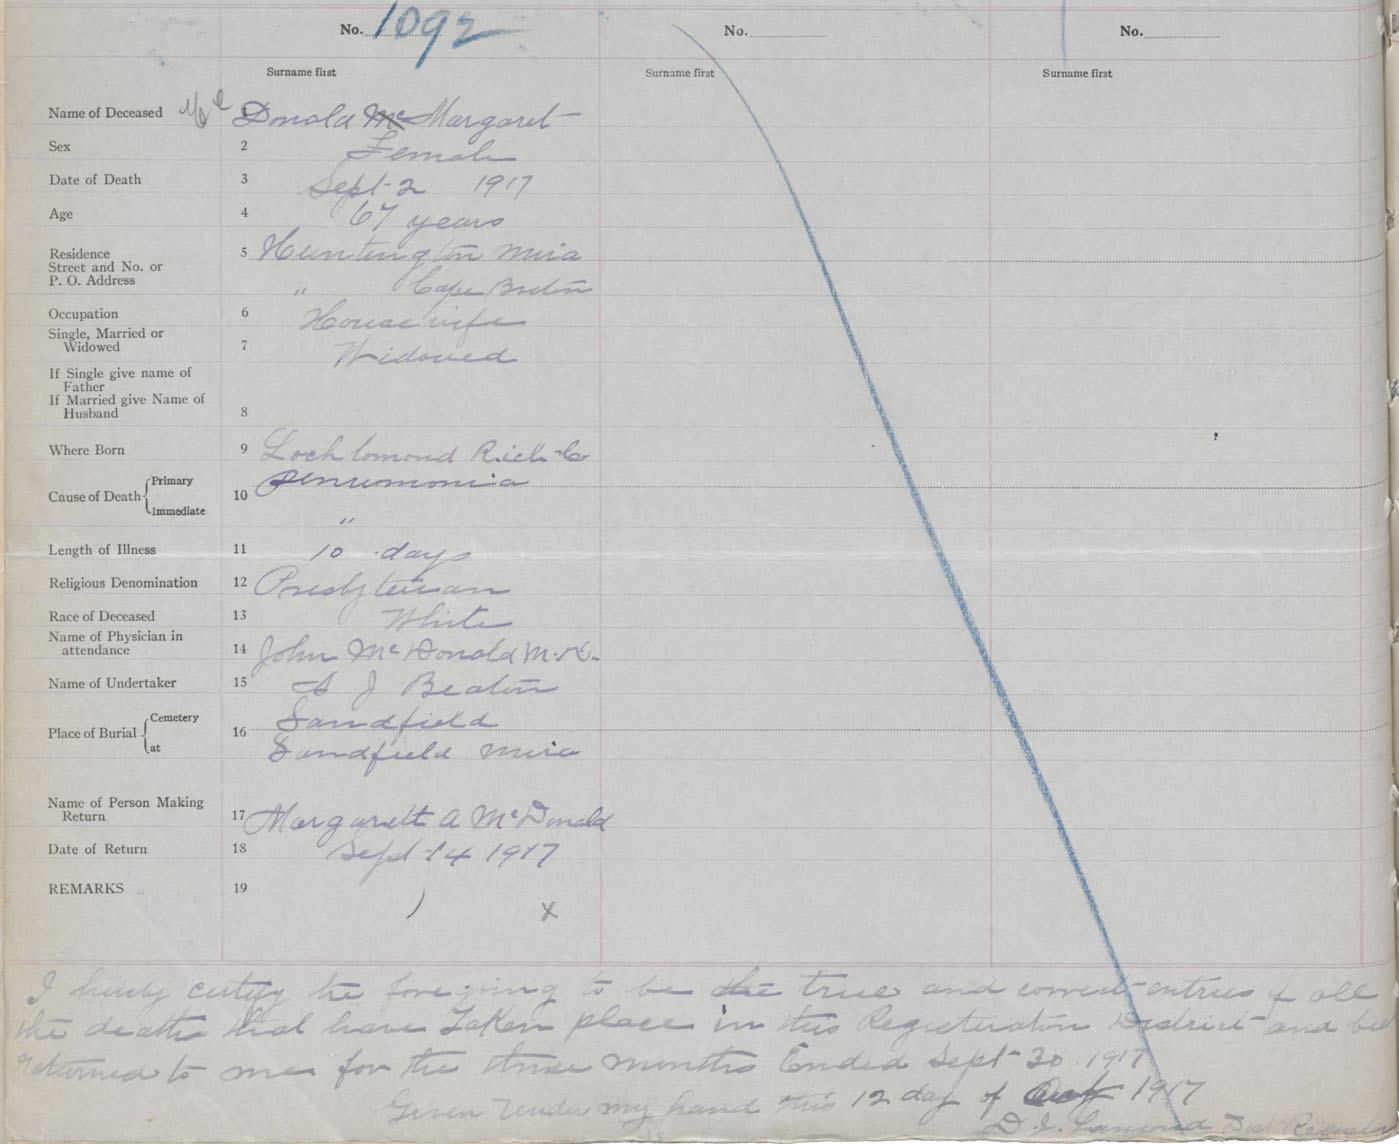 No. 1092 No. No.
Surname first Surname first Surname first
Name of Deceased Mc 1 Donald Mc Margaret
Sex 2 Female
Date of Death 3 Sept 2 1917
Age 4 67 years
Residence
Street and No. or
P. O. Address
5 Huntington Mira
" Cape Breton
Occupation 6 House wife
Single, Married or
Widowed
7 Widowed
If Single give name of
Father
If Married give Name of
Husband
8
Where Born 9 Loch lomond Rich. Co
Cause of Death Primary
Immediate
10 Penumonia
"
Length of Illness 11 10 days
Religious Denomination 12 Presbyterian
Race of Deceased 13 White
Name of Physician in
attendance
14 John McDonald M.D.
Name of Undertaker 15 A J Beaton
Place of Burial Cemetery
at
16 Sandfield
Sandfield Mira
Name of Person Making
Return
17 Margarett A McDonald
Date of Return 18 Sept 14 1917
REMARKS 19
) x
I hereby certify the foregoing to be the true and correct entries of all
the deaths that have Taken place in this Registration District and
returned to me for the three months Ended Sept 30 1917
Given Under my hand this 12 day of Oct 1917
D. J.